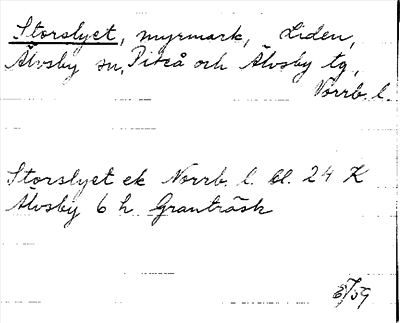 Storslyet, myrmark, Liden,
Älvsby sn, Piteå och Älvsby tg,
Norrb. l.
Storslyet ek Norrb. l. bl. 24 K
Älvsby 6 h Granträsk